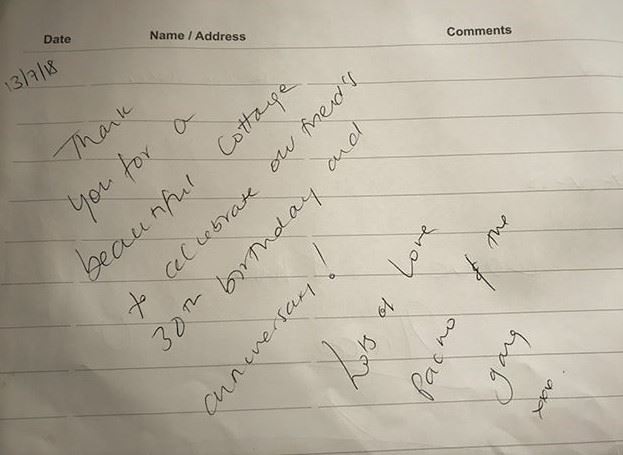 Date Name / Address Comments
13/7/18
Thank
you for a
beautiful Cottage
to celebrate our friend's
30th birthday and
anniversary!
Lots of Love
Pacino & the
gang
xxx.